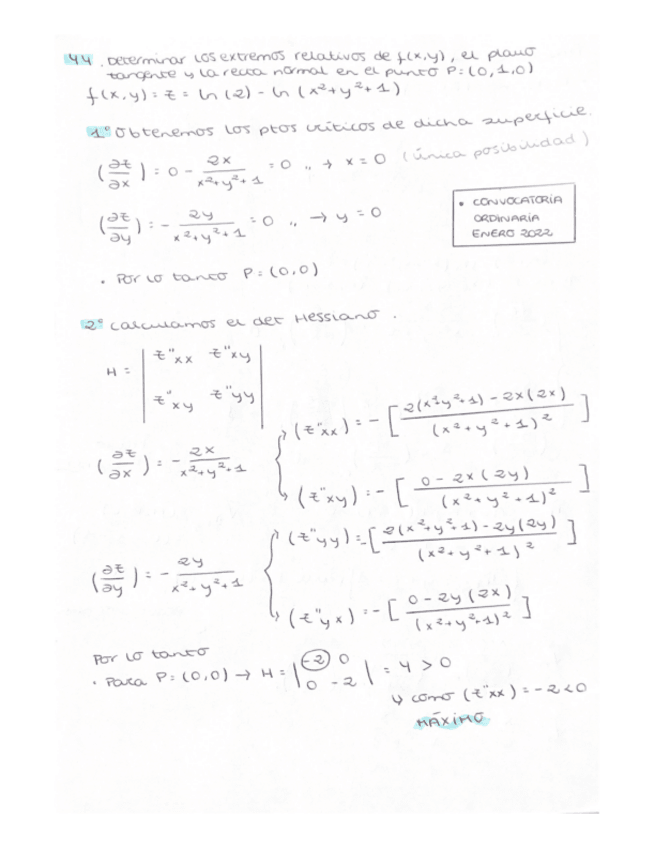 44. Determinar los extremos relativos de f(x,y), el plano
tangente y la recta normal en el punto P=(0,1,0)
f(x,y)=z=ln(2)-ln(x²+y²+1)
1º Obtenemos los ptos críticos de dicha superficie.
(∂z/∂x)=0-2x/(x²+y²+1)=0 ,, → x=0 (única posibilidad)
(∂z/∂y)=-2y/(x²+y²+1)=0 ,, → y=0
• CONVOCATORIA
ORDINARIA
ENERO 2022
• Por lo tanto P=(0,0)
2º Calculamos el det Hessiano.
H = | z''xx z''xy |
| z''xy z''yy |
(∂z/∂x)=-2x/(x²+y²+1)
(z''xx)=-[(2(x²+y²+1)-2x(2x))/(x²+y²+1)²]
(z''xy)=-[(0-2x(2y))/(x²+y²+1)²]
(∂z/∂y)=-2y/(x²+y²+1)
(z''yy)=-[(2(x²+y²+1)-2y(2y))/(x²+y²+1)²]
(z''yx)=-[(0-2y(2x))/(x²+y²+1)²]
Por lo tanto
• Para P=(0,0) → H = | -2 0 |
| 0 -2 | = 4 > 0
↳ como (z''xx)=-2<0
MÁXIMO